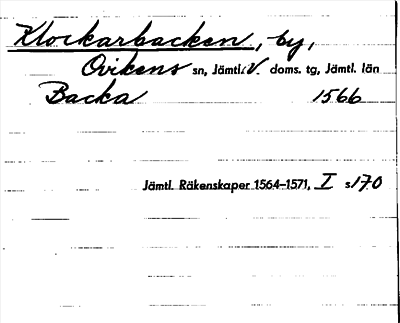 Klockarbacken, by,
Ovikens sn, Jämtl. V. doms. tg, Jämtl. län
Backa 1566
Jämtl. Räkenskaper 1564–1571, I s 170